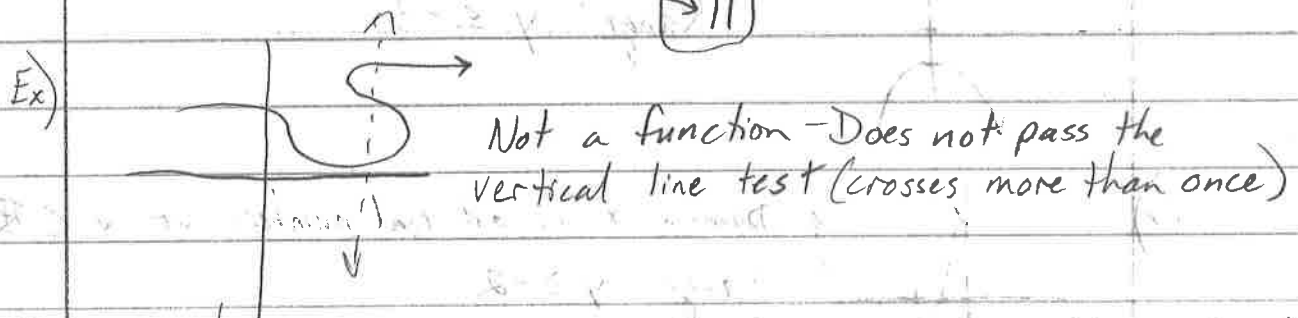 → 11
Ex)
Not a function - Does not pass the
vertical line test (crosses more than once)